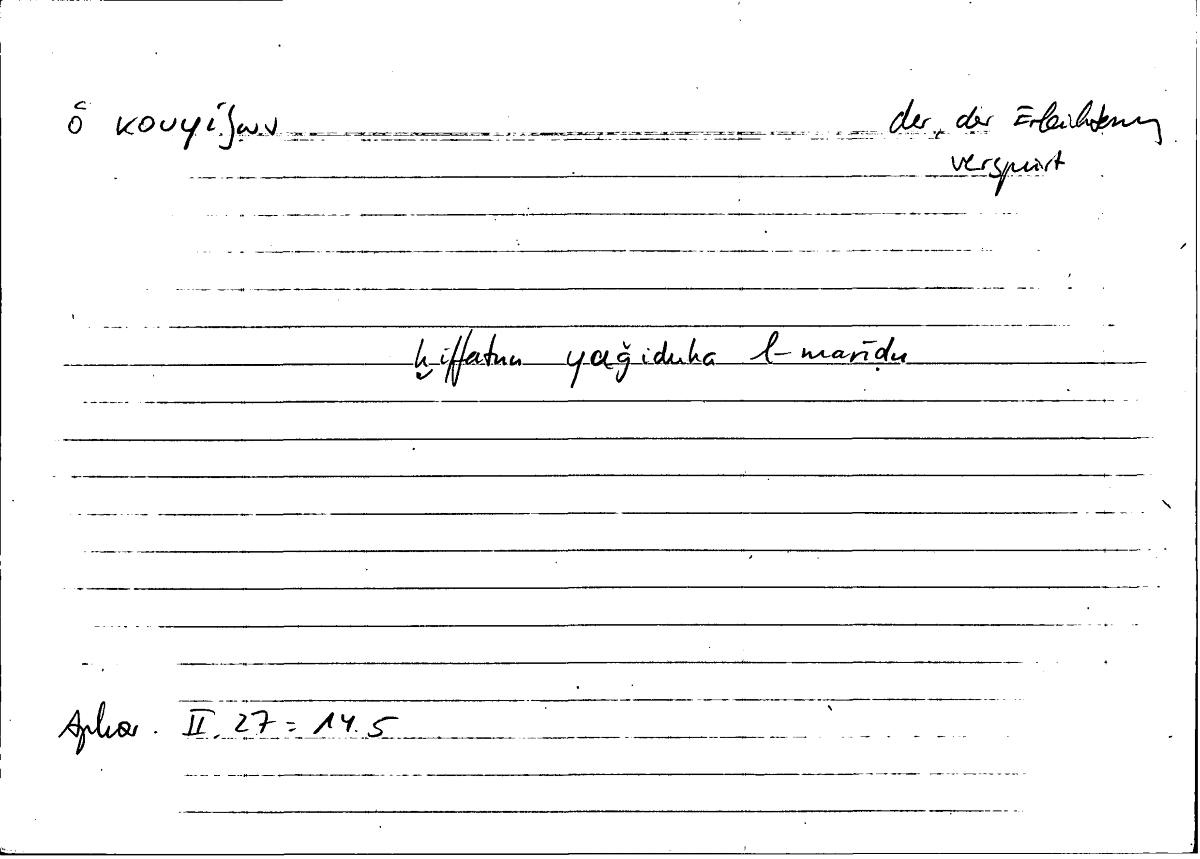 ὁ κουφίζων der, der Erleichterung
verspürt
ḫiffatun yaǧiduha l-marīḍu
Aphor. II. 27 = 14.5